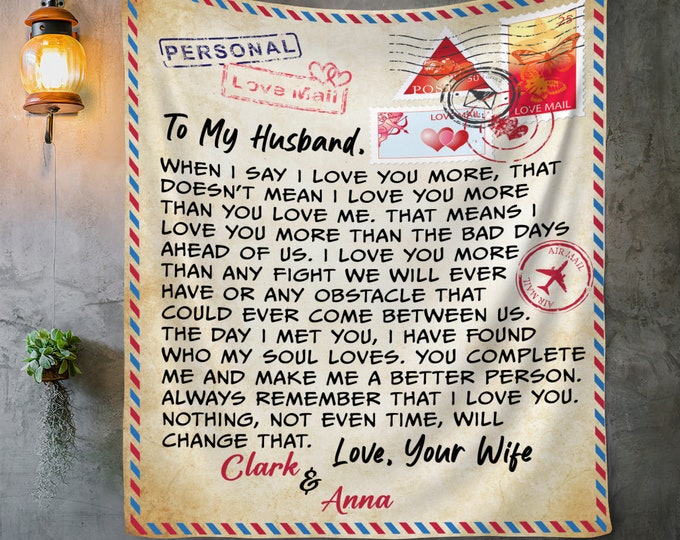 PERSONAL
Love Mail
25
POST
50
LOVE MAIL
LOVE MAIL
To My Husband,
WHEN I SAY I LOVE YOU MORE, THAT
DOESN'T MEAN I LOVE YOU MORE
THAN YOU LOVE ME. THAT MEANS I
LOVE YOU MORE THAN THE BAD DAYS
AHEAD OF US. I LOVE YOU MORE
THAN ANY FIGHT WE WILL EVER
HAVE OR ANY OBSTACLE THAT
COULD EVER COME BETWEEN US.
THE DAY I MET YOU, I HAVE FOUND
WHO MY SOUL LOVES. YOU COMPLETE
ME AND MAKE ME A BETTER PERSON.
ALWAYS REMEMBER THAT I LOVE YOU.
NOTHING, NOT EVEN TIME, WILL
CHANGE THAT.
AIR MAIL
AIR MAIL
Love, Your Wife
Clark
&
Anna